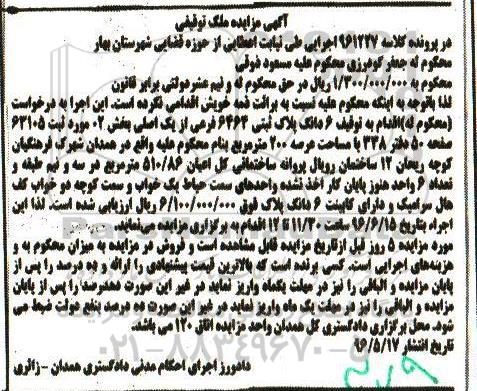 آگهی مزایده ملک توقیفی
در پرونده کلاسه ۹۶۱۲۲۷ اجرایی طی نیابت اعطایی از حوزه قضایی شهرستان بهار
محکوم له جعفر گودرزی محکوم علیه مسعود ذوقی
محکوم به ۱/۳۰۰/۰۰۰/۰۰۰ ریال در حق محکوم له و نیم عشر دولتی برابر قانون
لذا باتوجه به اینکه محکوم علیه نسبت به برائت ذمه خویش اقدامی نکرده است. این اجرا به درخواست
(محکوم له) اقدام به توقیف ۶ دانگ پلاک ثبتی ۶۴۶۴ فرعی از یک اصلی بخش ۰۲ مورد ثبت ۶۲۱۰۵
صفحه ۵۰ دفتر ۳۳۸ با مساحت عرصه ۲۰۰ مترمربع بنام محکوم علیه واقع در همدان شهرک فرهنگیان
کوچه ریحان ۱۲ ساختمان رویال پروانه ساختمانی کل اعیان ۵۱۰/۸۶ مترمربع در سه و نیم طبقه و
تعداد ۶ واحد هنوز پایان کار اخذ نشده واحدهای سمت حیاط یک خواب و سمت کوچه دو خواب کف
هال سرامیک و دارای کابینت ۶ دانگ پلاک فوق ۶/۱۰۰/۰۰۰/۰۰۰ ریال ارزیابی شده است. لذا این
اجراء بتاریخ ۹۶/۶/۱۵ ساعت ۱۱/۳۰ الی ۱۲ اقدام به برگزاری مزایده می‌نماید.
مورد مزایده ۵ روز قبل از تاریخ مزایده قابل مشاهده است و فروش در مزایده به میزان محکوم به و
هزینه‌های اجرایی است. کسی برنده است که بالاترین قیمت پیشنهادی را ارائه و ده درصد را پس از
پایان مزایده و الباقی را نیز در مهلت یکماه واریز نماید در غیر این صورت ده درصد را پس از پایان
مزایده و الباقی را نیز در مهلت یک ماه واریز نماید در غیر این صورت ده درصد بنفع دولت ضبط می
شود. محل برگزاری دادگستری کل همدان واحد مزایده اتاق ۱۲۰ می باشد.
تاریخ انتشار ۹۶/۵/۱۷
دادورز اجرای احکام مدنی دادگستری همدان - زائری
۰۲۱-۸۸۳۴۹۶۷۰-۵